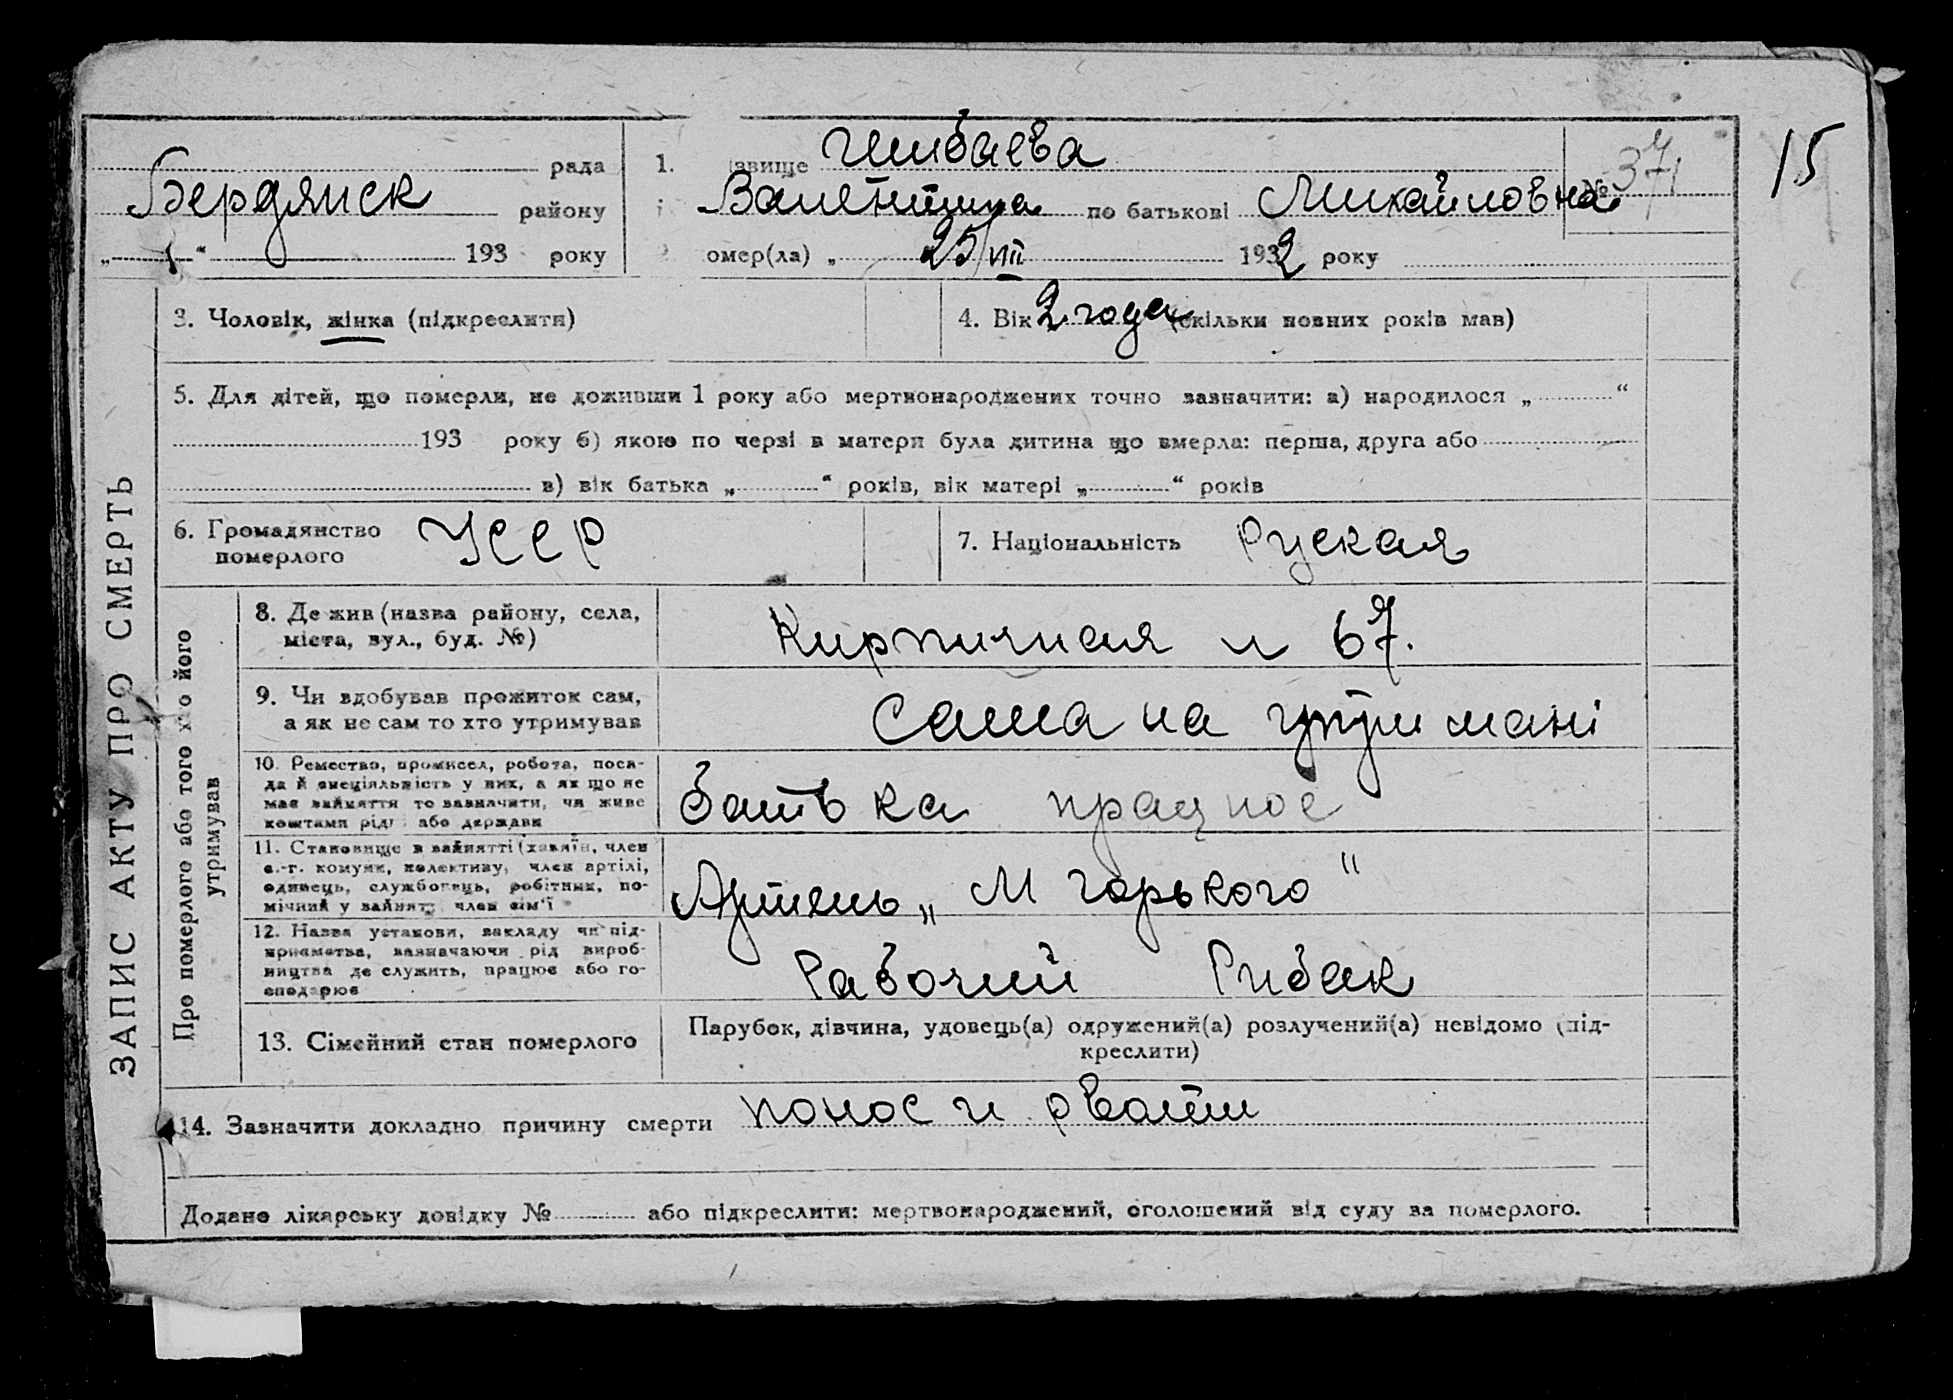 15
рада
Бердянск району
193 року
1. звище Шибаева
Валентина по батькові Михайловна
№ 371
омер(ла) „ 25/VII 1932 року
3. Чоловік, жінка (підкреслити)
4. Вік 2 года (скільки повних років мав)
5. Для дітей, що померли, не доживши 1 року або мертвонароджених точно зазначити: а) народилося „ “
193 року б) якою по черзі в матери була дитина що вмерла: перша, друга або
в) вік батька „ “ років, вік матері „ “ років
6. Громадянство
померлого
УССР
7. Національність Руская
ЗАПИС АКТУ ПРО СМЕРТЬ
Про померлого або того хто його
утримував
8. Де жив (назва району, села,
міста, вул., буд. №)
Кирпичная н 67.
9. Чи вдобував прожиток сам,
а як не сам то хто утримував
Сама на утримані
10. Ремество, промисел, робота, поса-
да й спеціяльність у них, а як що не
має зайняття то зазначити, чи живе
коштами рід або держави
батька працює
11. Становище в зайнятті (хазяїн, член
с.-г. комуни, колективу, член артілі,
одинець, службовець, робітник, по-
мічний у зайнят член сім'ї
Артель „М горького"
12. Назва установи, закладу чи під-
приємства, зазначаючи рід вироб-
ництва де служить, працює або го-
сподарює
Рабочий Рибак
13. Сімейний стан померлого
Парубок, дівчина, удовець(а) одружений(а) розлучений(а) невідомо (під-
креслити)
14. Зазначити докладно причину смерти понос и рвоти
Додано лікарську довідку № або підкреслити: мертвонароджений, оголошений від суду за померлого.